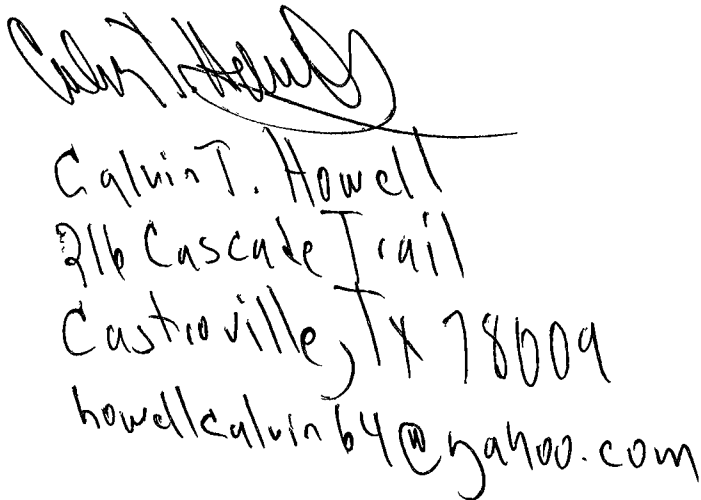 Calvin T. Howell
Calvin T. Howell
216 Cascade Trail
Castroville, TX 78009
howellcalvin64@yahoo.com